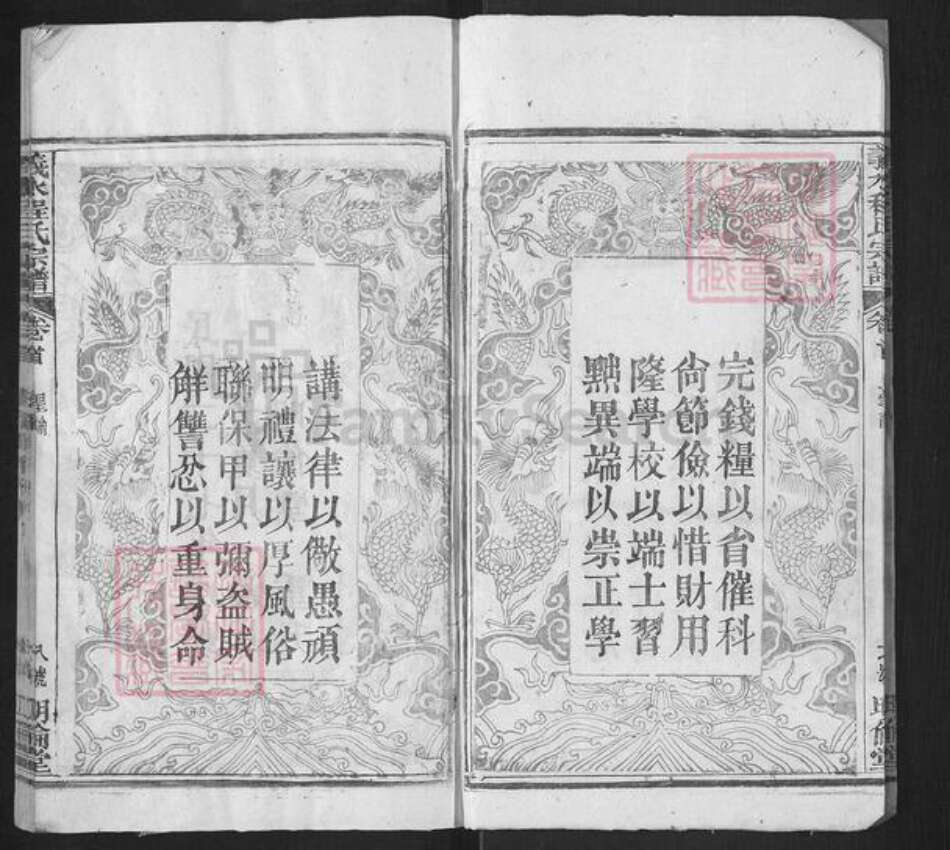 完錢糧以省催科
尙節儉以惜財用
隆學校以端士習
黜異端以崇正學
講法律以儆愚頑
明禮讓以厚風俗
聯保甲以彌盜賊
觧讐忿以重身命
義水程氏宗譜
卷首
聖諭
八號
明倫堂